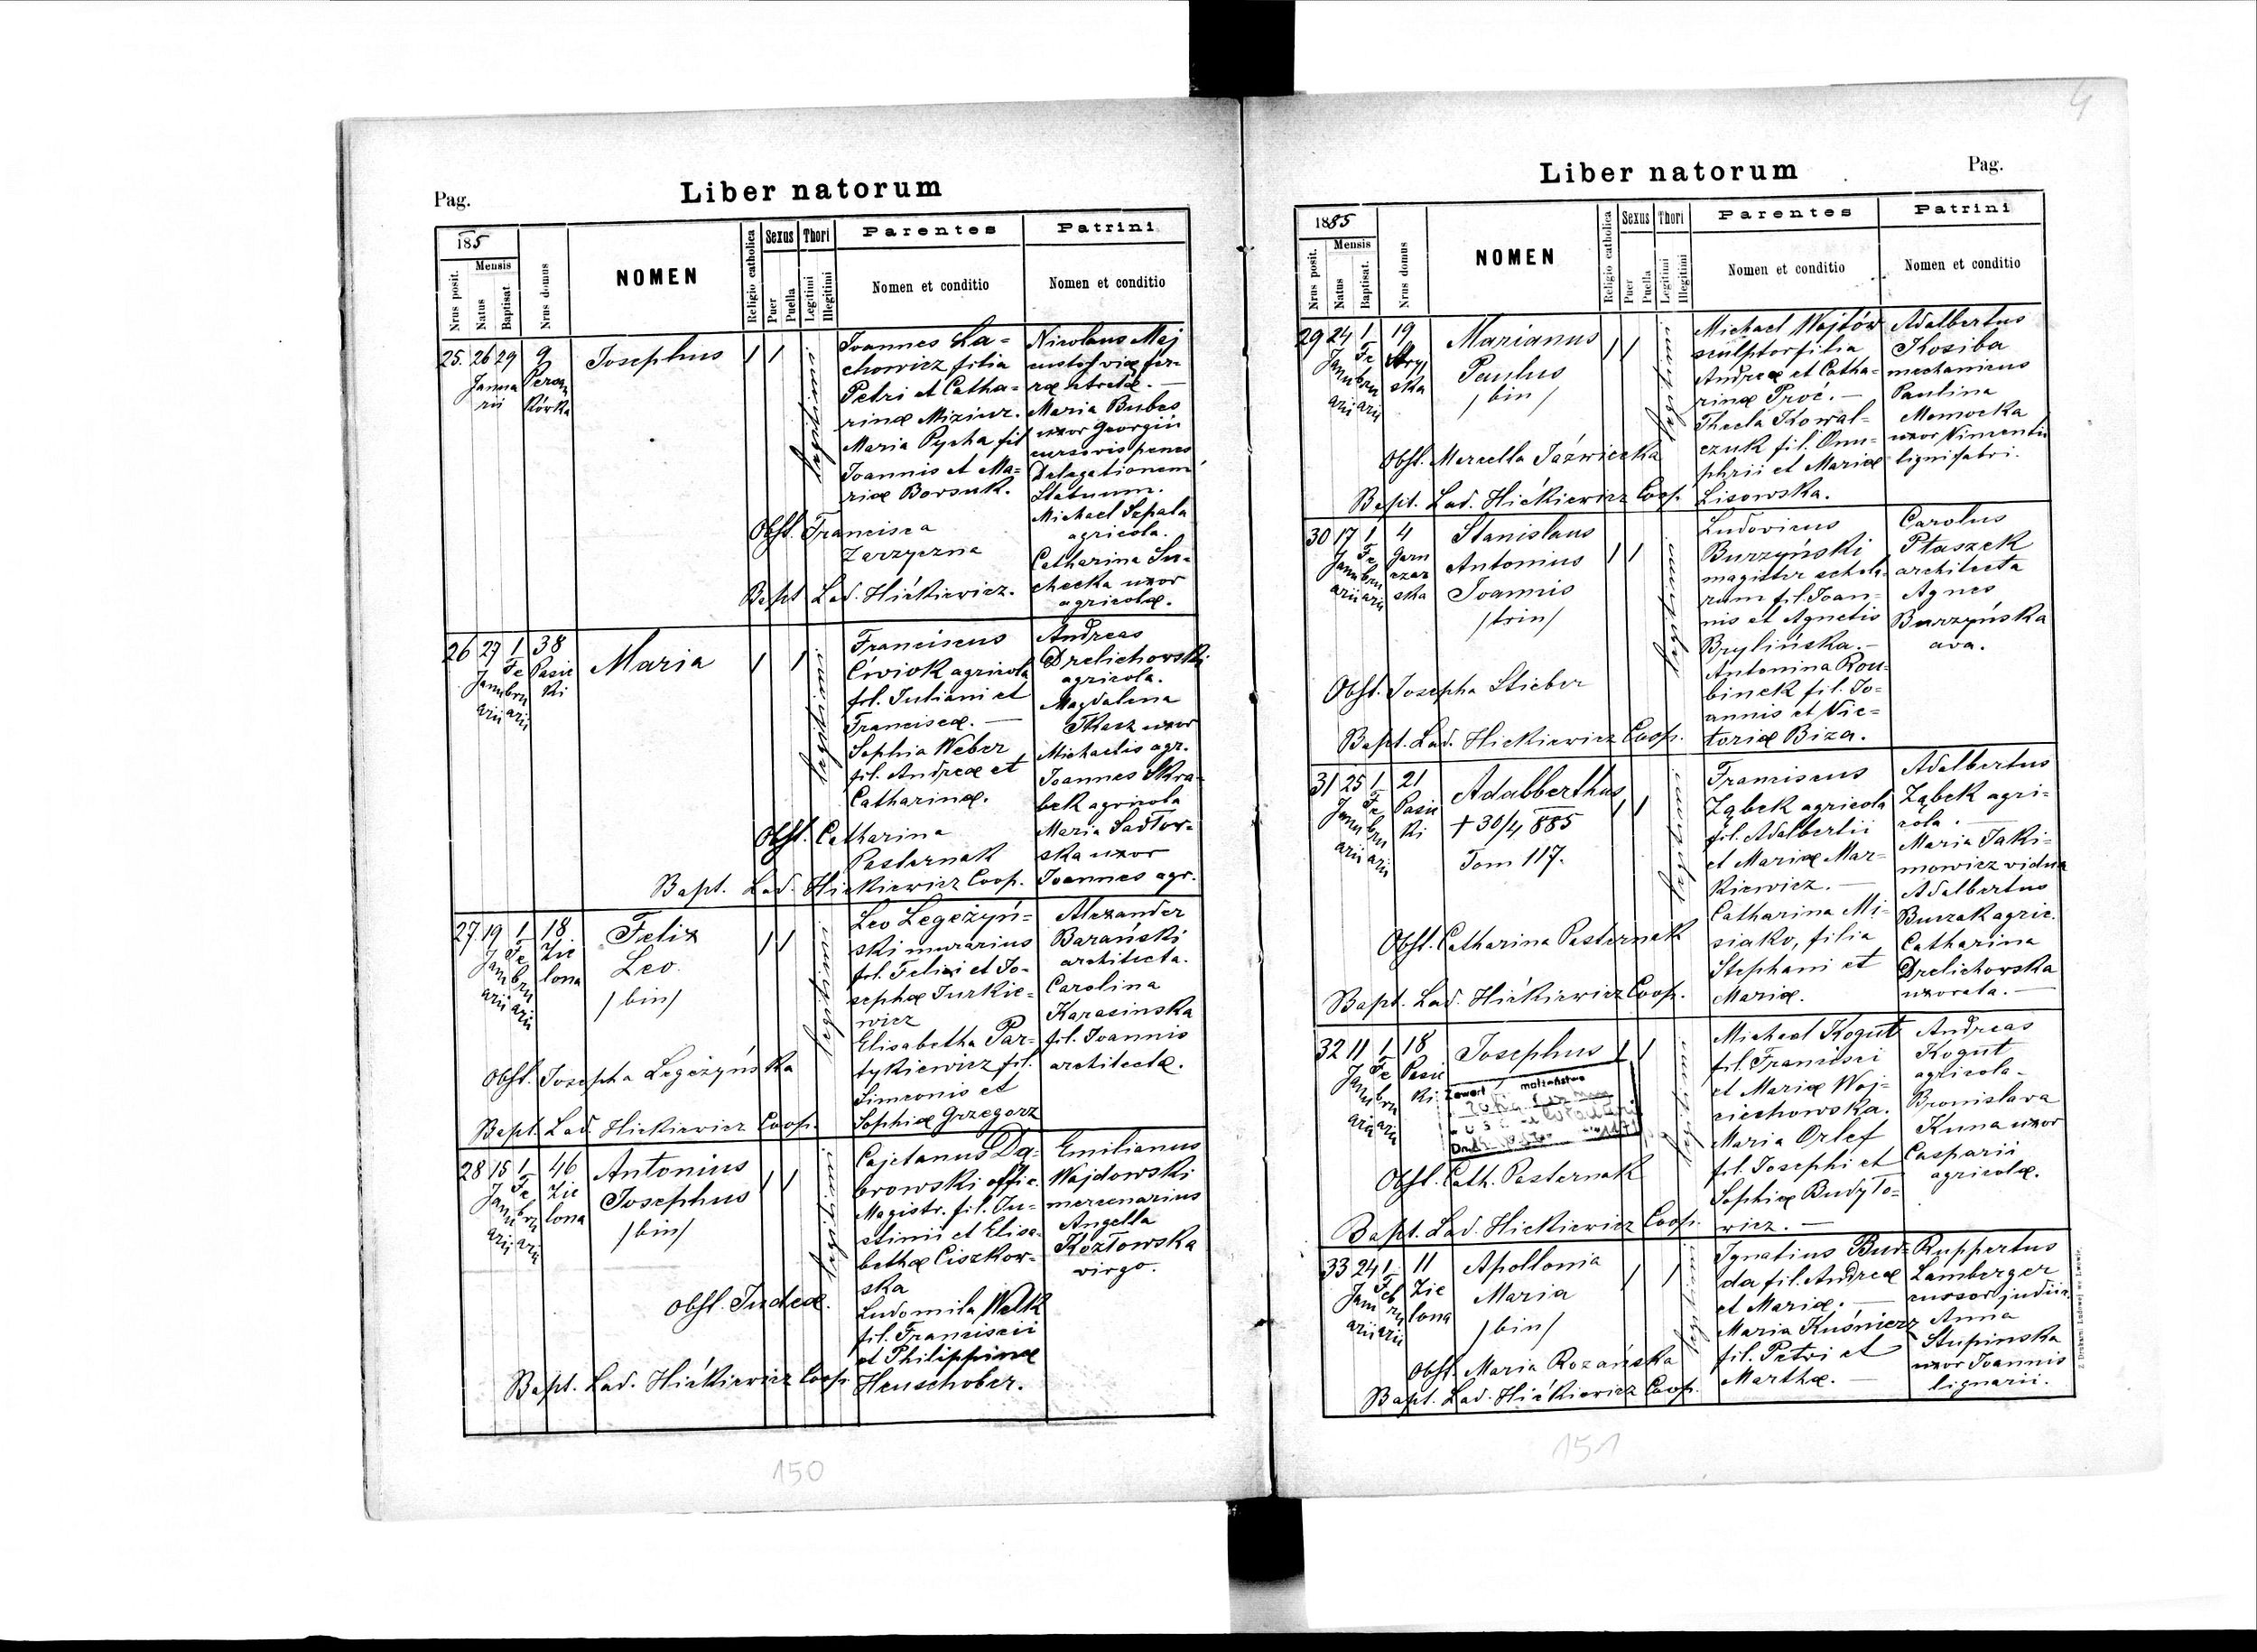 Pag.
Liber natorum
185
Nrus posit.
Mensis
Natus
Baptisat.
Nrus domus
NOMEN
Religio catholica
Sexus
Puer
Puella
Thori
Legitimi
Illegitimi
Parentes
Nomen et conditio
Patrini
Nomen et conditio
25. 26 29 9
Janua
rii
Persen
kówka
Josephus
Joannes La=
chowicz filia
Petri et Catha=
rinæ Miziur.
Maria Pycha fil
Joannis et Ma=
riæ Borsuk.
Nicolaus Maj
custos viæ fer-
ræ stratæ. —
Maria Bubes
uxor Georgii
cursoris penes
Delegationem
Statuum.
Michael Szpala
agricola.
Catharina Su-
checka uxor
agricolæ.
Obst. Francisca
Zarzyczna
Bapt Lad. Hićkiewicz.
26 27 1 38
Janu Febru Pasie
arii arii ki
Maria
Franciscus
Ćwiok agricola
fil. Juliani et
Franciscæ. —
Sophia Weber
fil. Andreæ et
Catharinæ.
Andreas
Drelichowski
agricola.
Magdalena
Tkacz uxor
Michaelis agr.
Joannes Skra-
bek agricola
Maria Sadłow-
ska uxor
Joannes agr.
Obst. Catharina
Pasternak
Bapt. Lad. Hickiewicz Coop.
27 19 1 18
Janu Febru Zie
arii arii lona
Felix
Leo
/bin/
Leo Legeżyń=
ski murarius
fil. Felixi et Jo-
sephæ Jurkie-
wicz
Elisabetha Par-
tykiewicz fil.
Simeonis et
Sophiæ Grzegorz
Alexander
Barański
architecta.
Carolina
Karasinska
fil. Joannis
architectæ.
Obst. Josepha Legeżyńska
Bapt. Lad. Hickiewicz Coop.
28 15 1 46
Janu Febru Zie
arii arii lona
Antonius
Josephus
/bin/
Cajetanus Dą-
browski offic.
Magistr. fil. Ju-
stinii et Elisa-
bethæ Ciszkow-
ska
Ludomila Welk
fil. Franciscii
et Philippinæ
Heuschober.
Emilianus
Wajdowski
mercenarius
Angella
Kozłowska
virgo.
Obst. Judea.
Bapt. Lad. Hićkiewicz Coop.
150
4
Liber natorum
Pag.
1885
Nrus posit.
Mensis
Natus
Baptisat.
Nrus domus
NOMEN
Religio catholica
Sexus
Puer
Puella
Thori
Legitimi
Illegitimi
Parentes
Nomen et conditio
Patrini
Nomen et conditio
29 24 1 19
Janu Febru Stryj
arii arii ska
Marianus
Paulus
/bin/
Michael Wojtów
sculptor filia
Andreæ et Catha-
rinæ Proć. —
Thecla Kowal-
czuk fil. Onu-
phrii et Mariæ
Lisowska.
Adalbertus
Kosiba
mechanicus
Paulina
Momocka
uxor Vincentii
lignifabri.
Obst. Marcella Jaźwiecka
Bapt. Lad. Hićkiewicz Coop.
30 17 1 4
Janu Febru Garn
arii arii czar
ska
Stanislaus
Antonius
Joannis
/trin/
Ludovicus
Burzyński
magister schola-
rum fil. Joan-
nis et Agnetis
Brylińska. —
Antonina Rou-
binek fil. Jo-
annis et Vic-
toriæ Biza.
Carolus
Ptaszek
architecta
Agnes
Burzyńska
ava.
Obst. Josepha Stieber
Bapt. Lad. Hickiewicz Coop.
31 25 1 21
Janu Febru Pasie
arii arii ki
Adalberthus
+ 30/4 885
Tom 117.
Franciscus
Ząbek agricola
fil. Adalbertii
et Mariæ Mar-
kiewicz. —
Catharina Mi-
siako, filia
Stephani et
Mariæ.
Adalbertus
Ząbek agri-
cola. —
Maria Jaki-
mowicz vidua
Adalbertus
Burzak agric.
Catharina
Drelichowska
uxorata. —
Obst. Catharina Pasternak
Bapt. Lad. Hićkiewicz Coop.
32 11 1 18
Janu Febru Pasie
arii arii ki
Josephus
Zawarł małżeństwo
Dn.
Michael Kogut
fil. Francisci
et Mariæ Woj-
ciechowska.
Maria Orlef
fil. Josephi et
Sophiæ Budyło-
wicz. —
Andreas
Kogut
agricola-
Bronislava
Kuna uxor
Casparii
agricolæ.
Obst. Cath. Pasternak
Bapt. Lad. Hickiewicz Coop.
33 24 1 11
Janu Febru Zie
arii arii lona
Apollonia
Maria
/bin/
Ignatius Bur-
da fil. Andreæ
et Mariæ. —
Maria Kuśnierz
fil. Petri et
Marthæ. —
Ruppertus
Lamberger
cursor judic.
Anna
Stupinska
uxor Joannis
lignarii.
Obst. Maria Rozańska
Bapt. Lad. Hićkiewicz Coop.
Z Drukarni Ludowej we Lwowie.
151